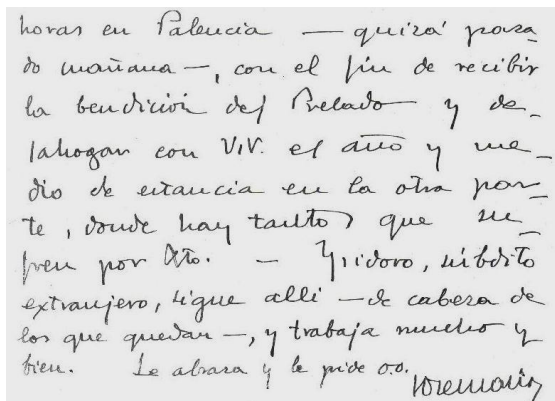 horas en Palencia — quizá pasa-
do mañana —, con el fin de recibir
la bendición del Prelado y de-
sahogar con V.V. el año y me-
dio de estancia en la otra par-
te, donde hay tantos que su-
fren por Xto. — Ysidoro, súbdito
extranjero, sigue allí — de cabeza de
los que quedan —, y trabaja mucho y
bien. Le abraza y le pide o.o.
Josemaría